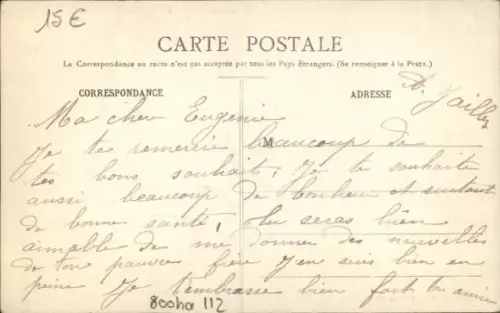 15€
CARTE POSTALE
La Correspondance au recto n'est pas acceptée par tous les Pays Etrangers. (Se renseigner à la Poste.)
CORRESPONDANCE
ADRESSE
Jailly
Ma cher Eugénie
M
Je te remercie beaucoup de
tes bons souhaits, Je te souhaite
aussi beaucoup de bonheur et surtout
de bonne santé, tu seras bien
aimable de me donner des nouvelles
de ton pauvre frère j'en suis bien en
peine Je t'embrasse bien fort ton amie
800ha 112